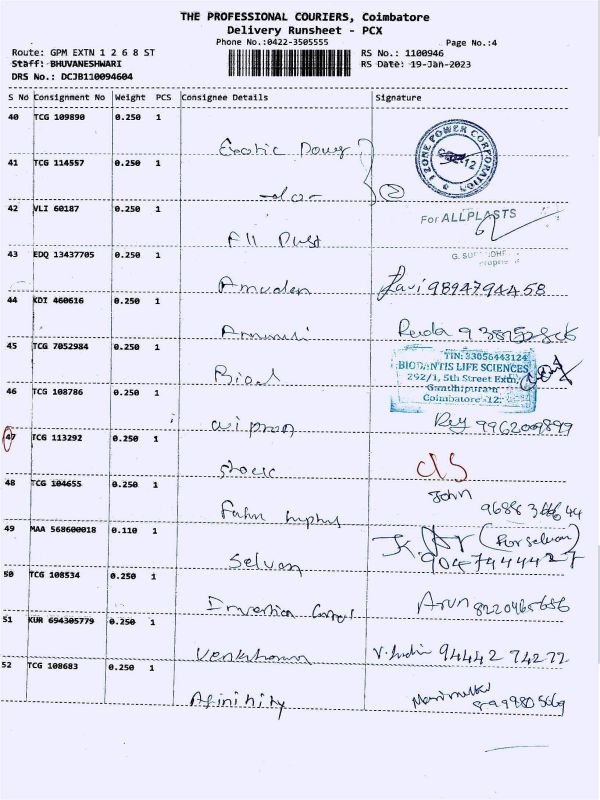 THE PROFESSIONAL COURIERS, Coimbatore
Delivery Runsheet - PCX
Phone No.:0422-3505555 Page No.:4
Route: GPM EXTN 1 2 6 8 ST RS No.: 1100946
Staff: BHUVANESHWARI RS Date: 19-Jan-2023
DRS No.: DCJB110094604
S No Consignment No Weight PCS Consignee Details Signature
40 TCG 109890 0.250 1
1 ZONE POWER CORPORATION
41 TCG 114557 0.250 1
-do-
42 VLI 60187 0.250 1
For ALLPLASTS
43 EDQ 13437705 0.250 1
Amudan Ravi 9894794458
44 KDI 460616 0.250 1
45 TCG 7052984 0.250 1
TIN: 33056443124
BIODANTIS LIFE SCIENCES
292/1, 5th Street Extn,
Gandhipuram
Coimbatore - 12.
46 TCG 108786 0.250 1
9962009899
47 TCG 113292 0.250 1
48 TCG 104655 0.250 1
John
49 MAA 568600018 0.110 1
(For selvan)
Selvan 9047444427
50 TCG 108534 0.250 1
Arun 8220465656
51 KUR 694305779 0.250 1
94442 74272
52 TCG 108683 0.250 1
Afinihity